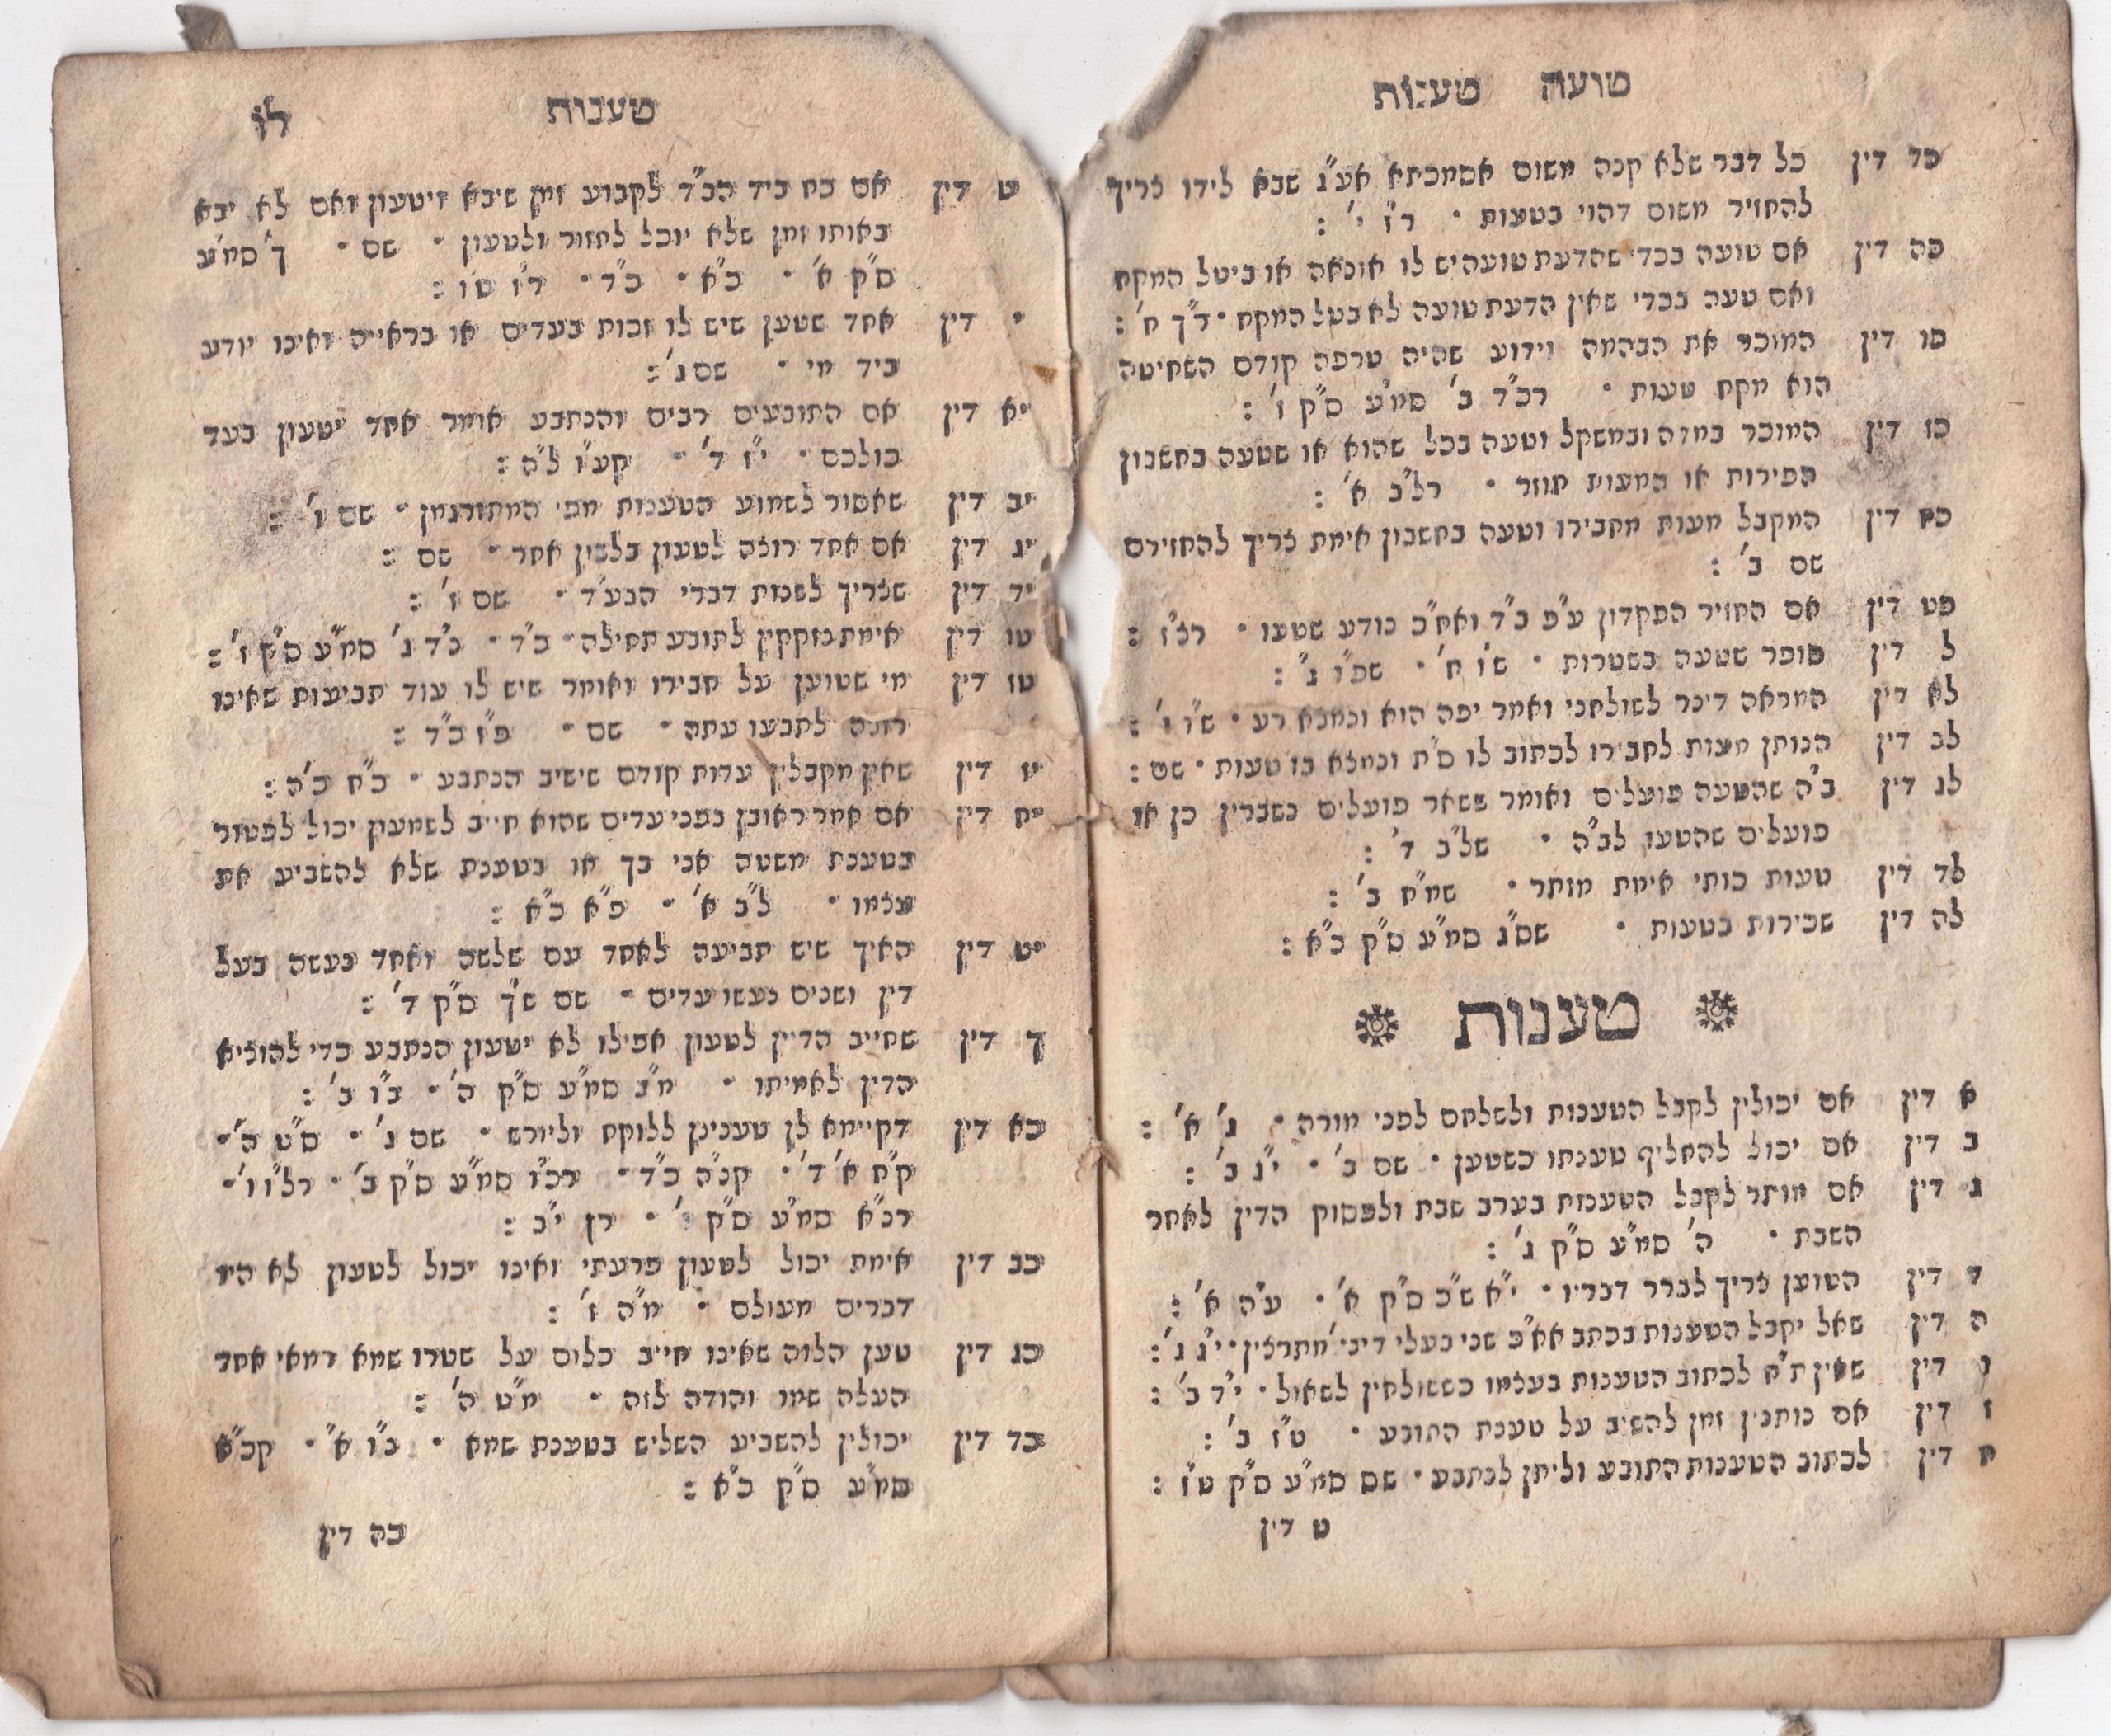 טועה טענות
כד דין כל דבר שלא קנה משום אסמכתא אע"ג שבא לידו צריך
להחזיר משום דהוי בטעות • ר"ז י' :
כה דין אם טועה בכדי שהדעת טועה יש לו אונאה או ביטל המקח
ואם טעה בכדי שאין הדעת טועה לא בטל המקח • ד"ך ח' :
כו דין המוכר את הבהמה וידוע שהיה טרפה קודם השחיטה
הוא מקח טעות • רכ"ד ב' סמ"ע ס"ק ז' :
כז דין המוכר במדה ובמשקל וטעה בכל שהוא או שטעה בחשבון
הפירות או המעות חוזר • רל"ב א' :
כח דין המקבל מעות מחבירו וטעה בחשבון אימת צריך להחזירם
שם ב' :
כט דין אם החזיר הפקדון ע"פ ב"ד ואח"כ נודע שטעו • רצ"ז :
ל דין סופר שטעה בשטרות • ש"ו ח' • שפ"ו ג' :
לא דין המראה דינר לשולחני ואמר יפה הוא ונמצא רע • ש"ו ו' :
לב דין הנותן מעות לחבירו לכתוב לו ס"ת ונמצא בו טעות • שם :
לג דין ב"ה שהטעה פועלים ואומר ששאר פועלים נשכרין כן או
פועלים שהטעו לב"ה • של"ב ד' :
לד דין טעות כותי אימת מותר • שמ"ח ב' :
לה דין שכירות בטעות • שס"ג סמ"ע ס"ק כ"א :
טענות
א דין אם יכולין לקבל הטענות ולשלחם לפני מורה • ג' א' :
ב דין אם יכול להחליף טענתו כשטען • שם ב' • י"ג ב' :
ג דין אם מותר לקבל הטענות בערב שבת ולפסוק הדין לאחר
השבת • ה' סמ"ע ס"ק ג' :
ד דין הטוען צריך לברר דבריו • י"א ש"כ ס"ק א' • ע"ה א' :
ה דין שאל יקבל הטענות בכתב אא"כ שני בעלי דיני' מתרצין • י"ג ג' :
ו דין שאין ת"ח לכתוב הטענות בעצמו כששולחין לשאול • י"ד ב' :
ז דין אם נותנין זמן להשיב על טענת התובע • ט"ז ב' :
ח דין לכתוב הטענות התובע וליתן לנתבע • שם סמ"ע ס"ק ט"ז :
ט דין
טענות לו
ט דין אם כח ביד הב"ד לקבוע זמן שיבא ויטעון ואם לא יבא
באותו זמן שלא יוכל לחזור ולטעון • שם • ך' סמ"ע
ס"ק א' • כ"א • כ"ד • ר"ו ט"ו :
י דין אחד שטען שיש לו זכות בעדים או בראייה ואינו יודע
ביד מי • שם ג' :
יא דין אם התובעים רבים והנתבע אומר אחד יטעון בעד
כולכם • י"ז ד' • קע"ו ל"ה :
יב דין שאסור לשמוע הטענות מפי המתורגמן • שם ו' :
יג דין אם אחד רוצה לטעון בלבין אחר • שם :
יד דין שצריך לשנות דברי הבע"ד • שם ז' :
טו דין אימת נזקקין לתובע תחילה • כ"ד • כ"ד ג' סמ"ע ס"ק ז' :
טז דין מי שטוען על חבירו ואומר שיש לו עוד תביעות שאינו
רוצה לתבעו עתה • שם • פ"ז כ"ד :
יז דין שאין מקבלין עדות קודם שישיב הנתבע • כ"ח כ"ה :
יח דין אם אמר ראובן בפני עדים שהוא חייב לשמעון יכול לפטור
בטענת משטה אני בך או בטענת שלא להשביע את
עצמו • ל"ב א' • פ"א כ"א :
יט דין האיך שיש תביעה לאחד עם שלשה ואחד נעשה בעל
דין ושנים נעשו עדים • שם ש"ך ס"ק ד' :
ך דין שחייב הדיין לטעון אפילו לא יטעון הנתבע כדי להוציא
הדין לאמיתו • מ"ב סמ"ע ס"ק ה' • ב"ו ב' :
כא דין דקיימא לן טענינן ללוקח וליורש • שם ג' • ס"ט ה' •
ק"ח א' ד' • קנ"ה כ"ד • רכ"ו סמ"ע ס"ק ב' • רל"ו ו' •
רכ"א סמ"ע ס"ק • רן י"ב :
כב דין אימת יכול לטעון פרעתי ואינו יכול לטעון לא היו
דברים מעולם • מ"ה ז' :
כג דין טען הלוה שאינו חייב כלום על שטרו שמא רמאי אחד
העלה שמו והודה לזה • מ"ט ה' :
כד דין יכולין להשביע השליש בטענת שמא • נ"ו א' • קכ"א
סמ"ע ס"ק כ"א :
כה דין